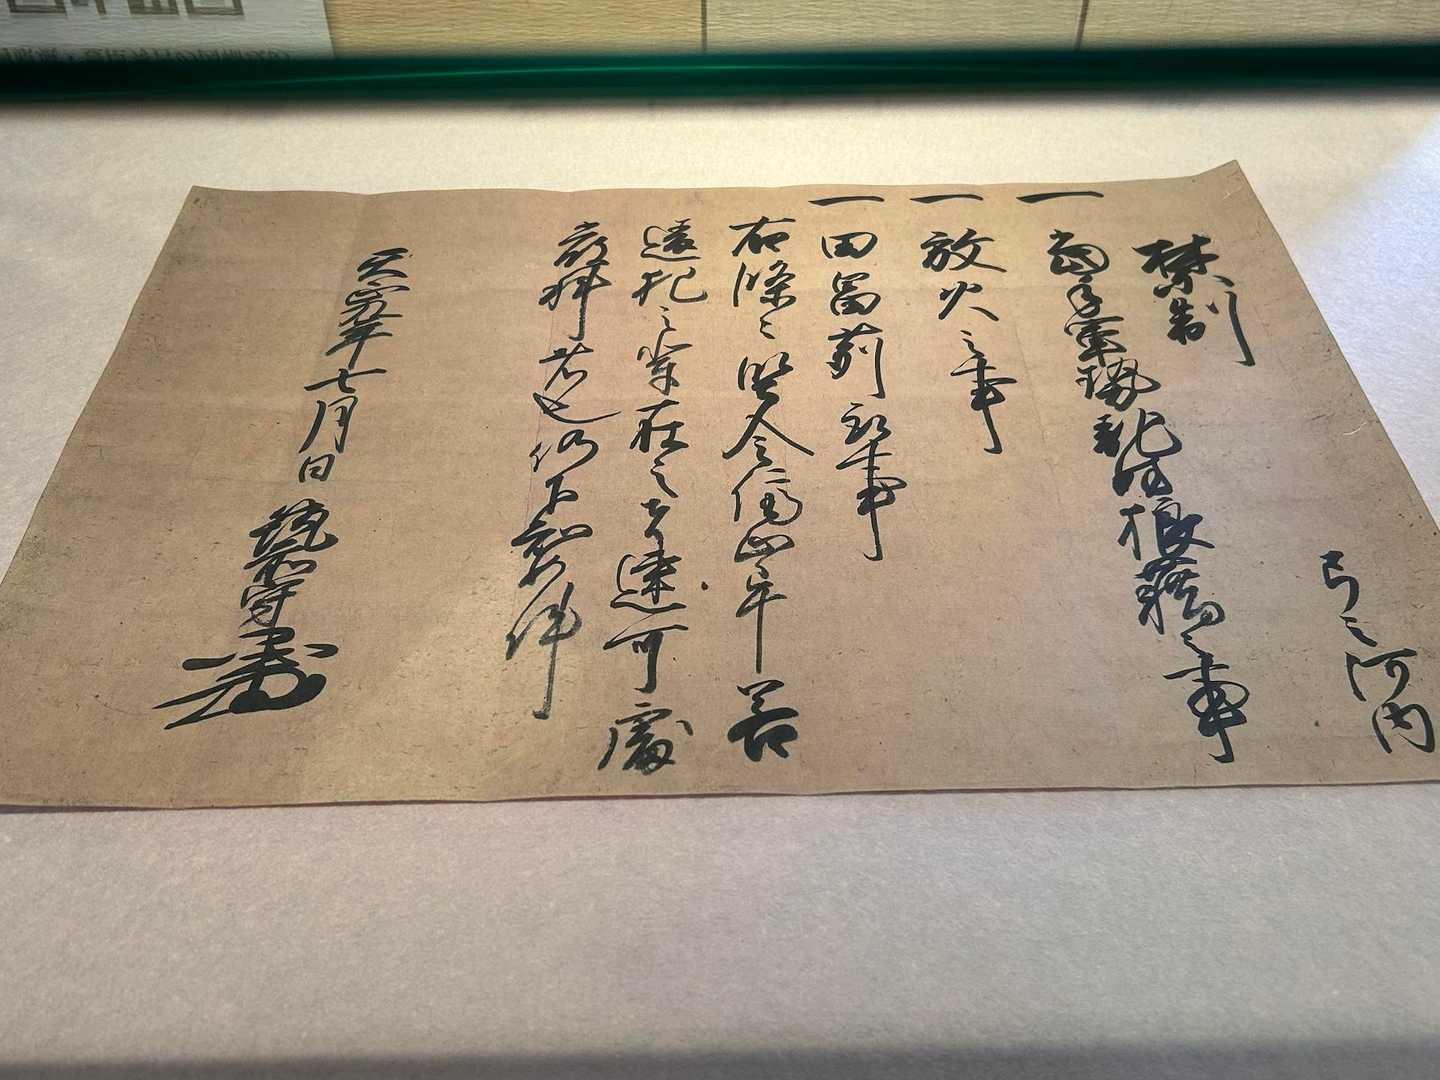 弓之河内
禁制
一 當手軍勢乱妨狼藉之事
一 放火之事
一 田畠苅取事
右條々堅令停止畢若
違犯之輩在之者速可處
厳科者也仍下知如件
天正九年七月日 筑前守